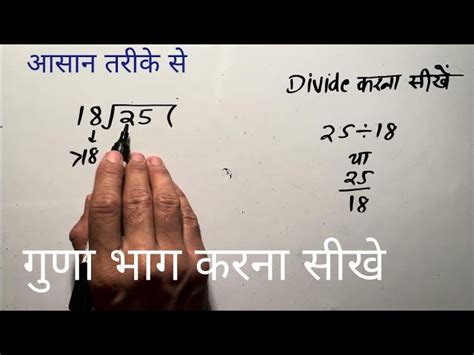 आसान तरीके से
Divide करना सीखें
18)25(
↓
>18
25÷18
या
25
18
गुणा भाग करना सीखे